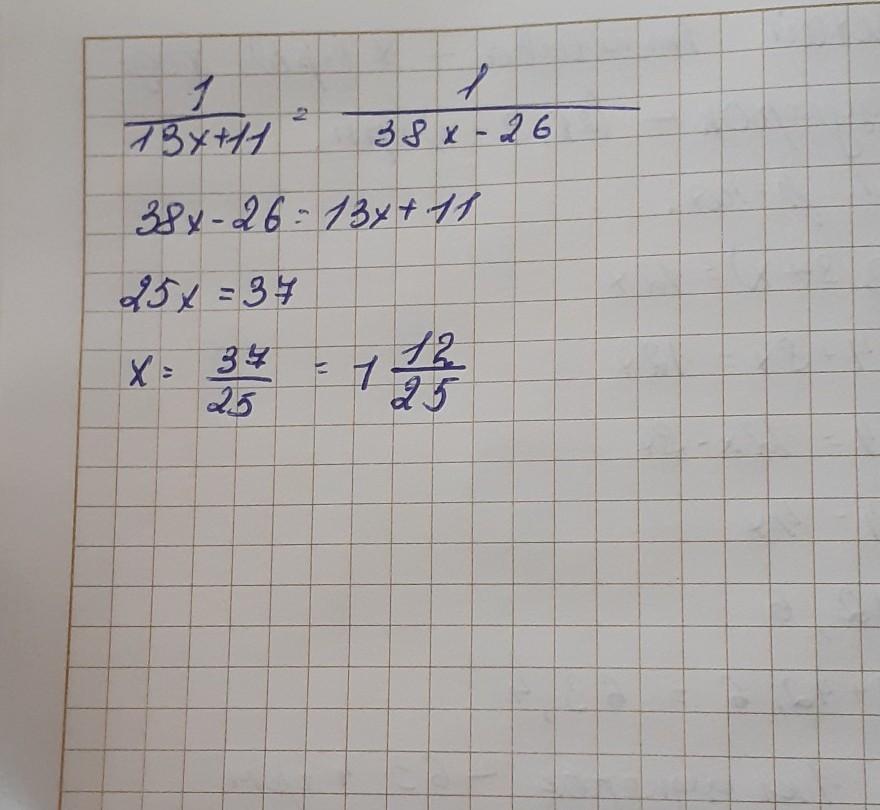 1/(13x+11) = 1/(38x-26)
38x-26=13x+11
25x=37
x=37/25 = 1 12/25